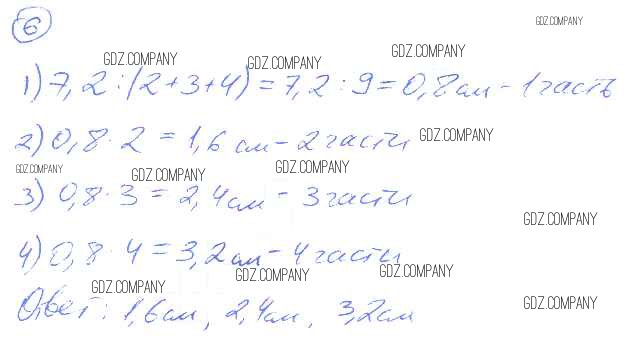 6
GDZ.COMPANY
GDZ.COMPANY GDZ.COMPANY GDZ.COMPANY
1) 7,2 : (2+3+4) = 7,2 : 9 = 0,8 см - 1 часть
2) 0,8 · 2 = 1,6 см - 2 части GDZ.COMPANY
GDZ.COMPANY GDZ.COMPANY GDZ.COMPANY
3) 0,8 · 3 = 2,4 см - 3 части
GDZ.COMPANY
4) 0,8 · 4 = 3,2 см - 4 части
GDZ.COMPANY GDZ.COMPANY GDZ.COMPANY
Ответ: 1,6 см, 2,4 см, 3,2 см
GDZ.COMPANY